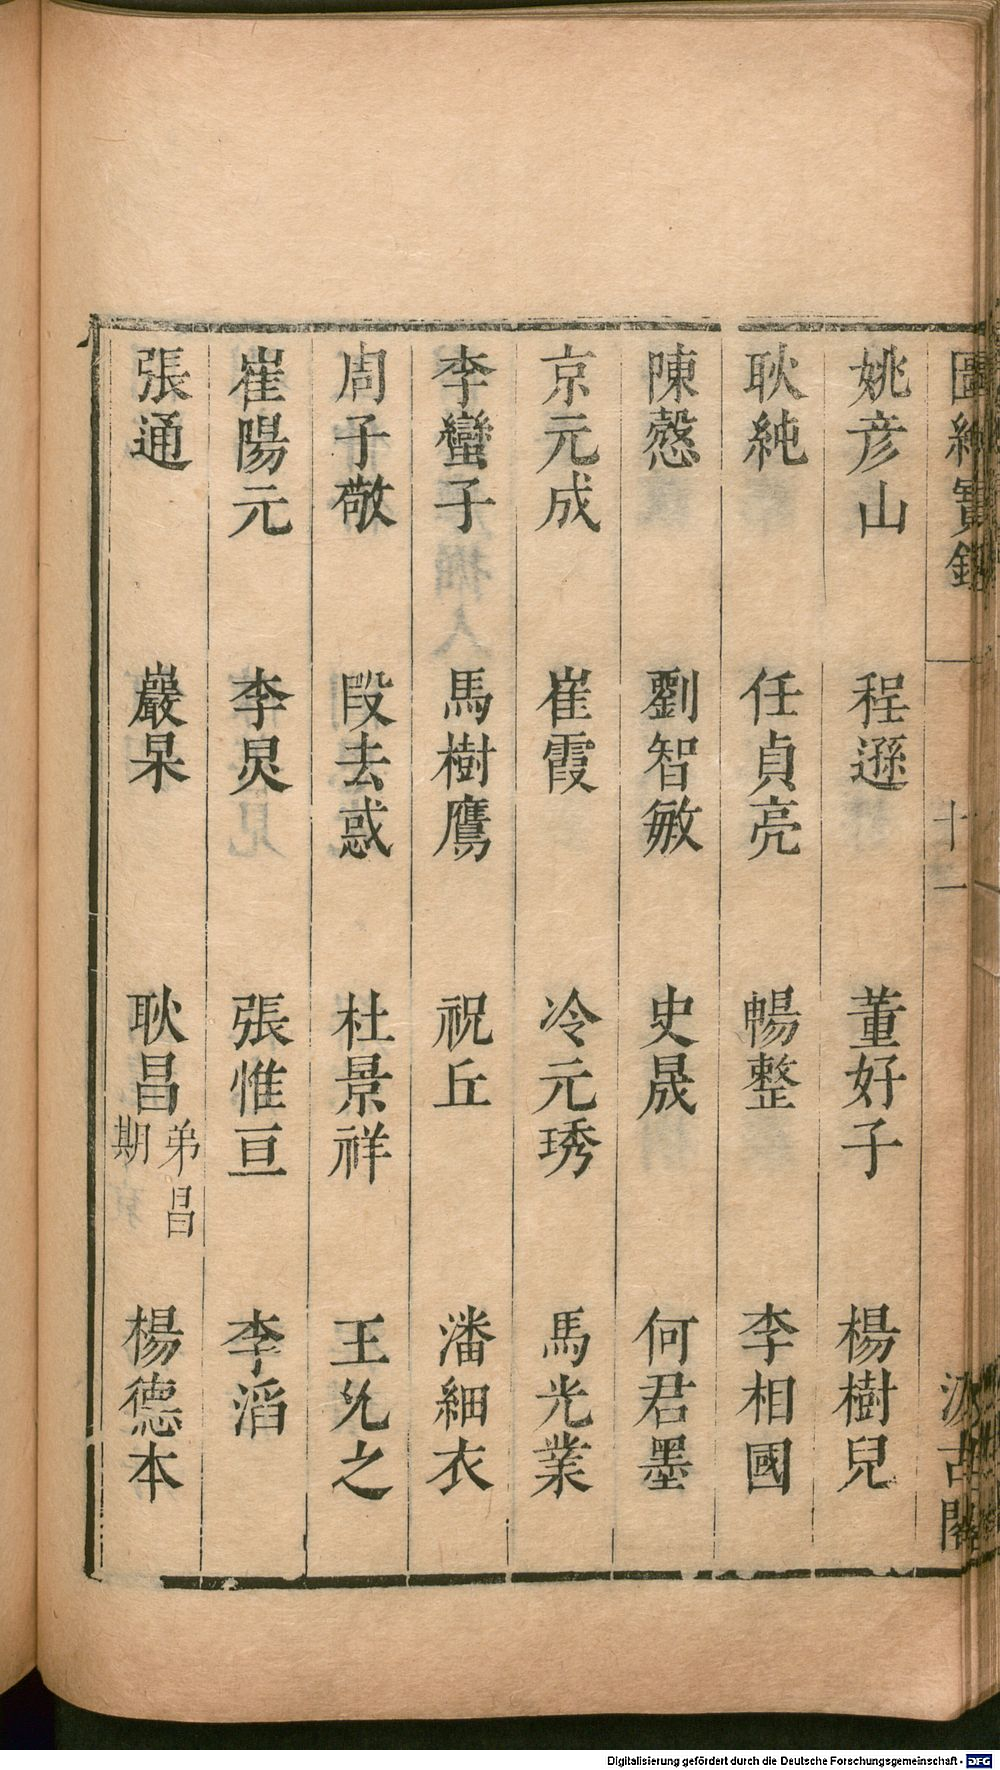 圖繪寶鑑 十一 汲古閣
姚彦山 程遜 董好子 楊樹兒
耿純 任貞亮 暢整 李相國
陳慤 劉智敏 史晟 何君墨
京元成 崔霞 冷元琇 馬光業
李蠻子 馬樹鷹 祝丘 潘細衣
周子敬 段去惑 杜景祥 王允之
崔陽元 李炅 張惟亘 李滔
張通 嚴杲 耿昌 弟昌期 楊德本
Digitalisierung gefördert durch die Deutsche Forschungsgemeinschaft - DFG